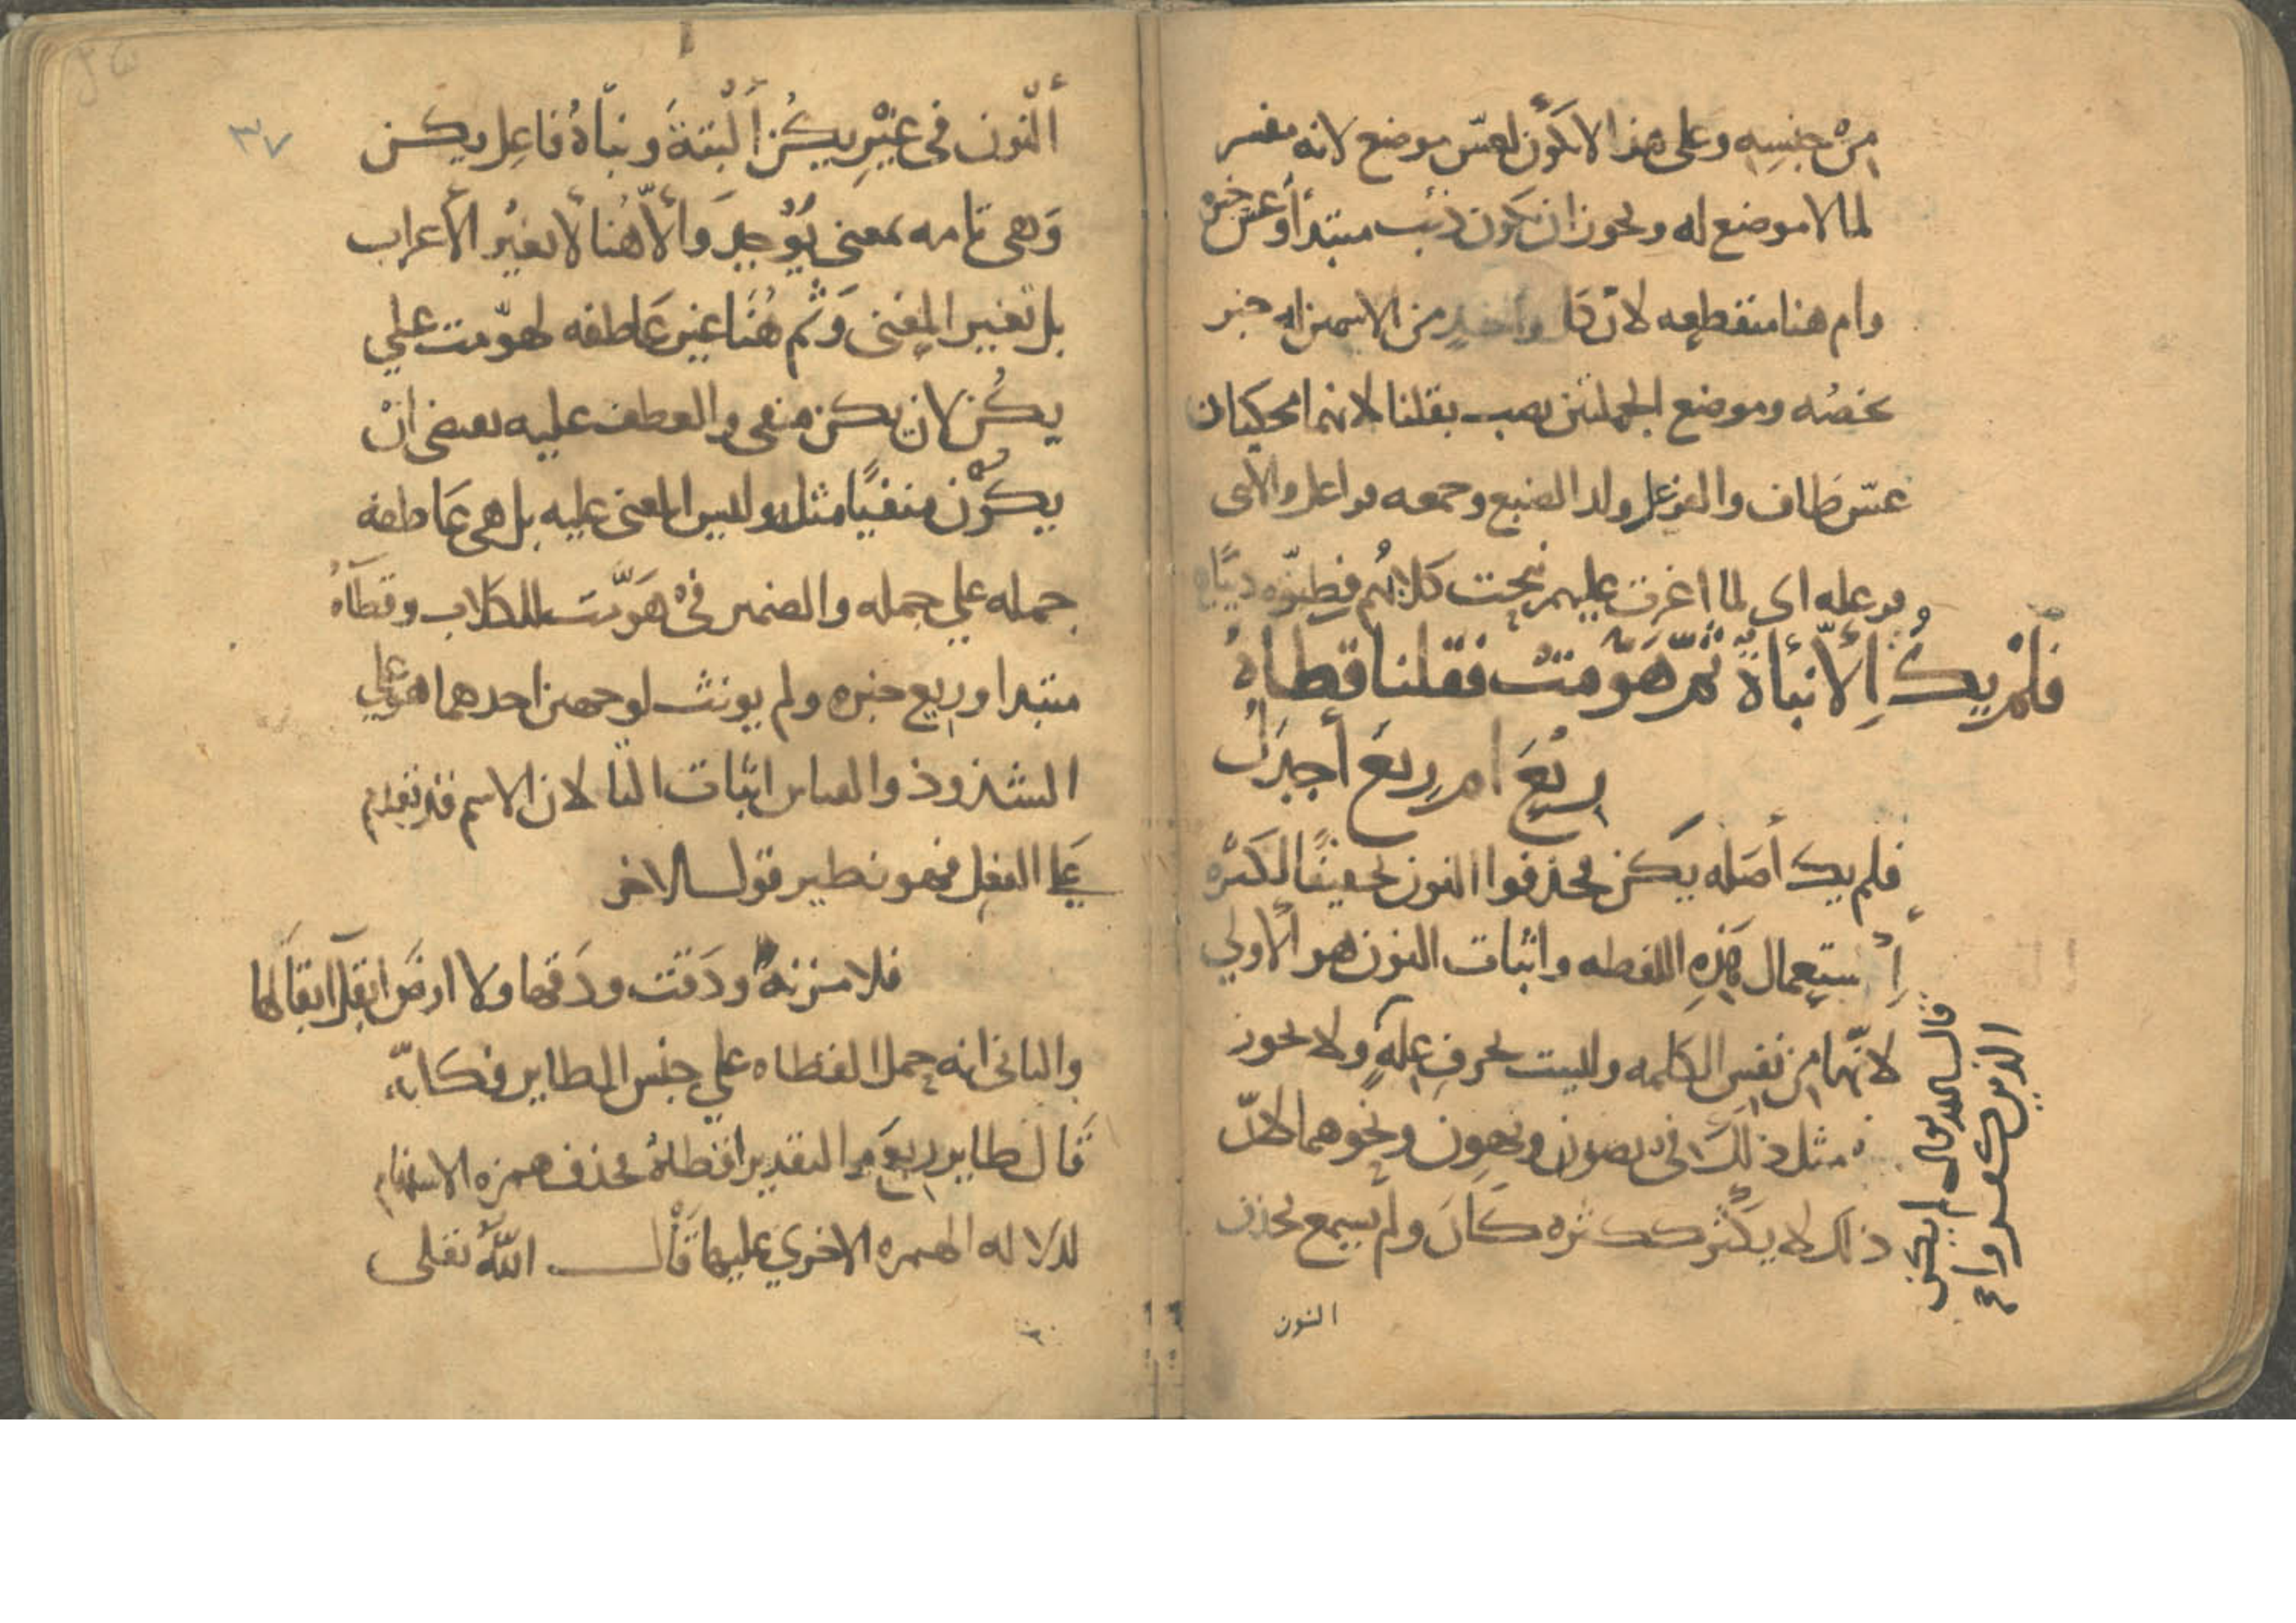 مِنْ جنسِهِ وعلى هذا لا يكَون لعسّ موضع لانه مفسر
لما لا موضع له ويجوز ان يكون ذئب مبتدأ وعسّ خبره
وام هنا منقطعه لانّ كل واحدٍ من الاسمين له خبر
يخصُه وموضع الجملتين نصب بقلنا لانهما محكيتان
عسّ طاف والفرعل ولد الضبع وجمعه فراعل والانثى
فرعله اى لما اغرت عليهم نبحت كلابُهم فظنّوه ذئبًا
فَلَمْ يكُ إِلّا نبأةٌ ثمّ هَوّمَتْ فقلنا قطاةٌ
رِيْعَ ام رِيعَ أجدَلُ
فلم يك أصله يكن فحذفوا النون تخفيفًا لكَثْره
إِستِعمال هَذِهِ اللفظه واثبات النون هو الأولي
لانّها مِن نفسِ الكلمه وليست بحرفِ علهٍ ولا يحوز
مثل ذلِكَ في يصون ويهون ونحوهما لانّ
ذلك لا يكثر ككثره كان ولم يسمع بحذف
قال الله تعالى لم يكن
الذين كفروا
النون
٣٧
ألنّون في غيْرِ يكُن ألْبتةَ ونبأةُ فاعِل يكن
وَهى تامه بمعنى يُوْجد وَألاّ هُنا لأ تغيُر الأعراب
بل تغيير المعنى وَثم هُنَا غير عَاطفه لهوّمت علي
يكُن لان يكن منفى والعطف عليه يقتضى انْ
يكوُن منفيًا مثله وليس المعنى عليه بل هى عَاطفه
جمله علي جمله والضمير فىْ هَوّمَت للكلاب وقطاَةُ
مبتدا وريع خبره ولم يونث لوجهين احدهما هو علي
الشذوذ والقياس اثبات التا لان الاسم قد تقدم
عَلى الفعل فهو نظير قول الاخر
فلا مزنةٌ ودَقت ودَقها ولا ارضَ ابقلَ ابقالَها
والثانى انه حمل القطاه علي جنس الطاير فكانّه
قَال طاير رِيعَ والتقدير اقطاةٌ فحذف همزه الاستفهام
لدلاله الهمزه الاخري عليها قَال اللهُ تعلى